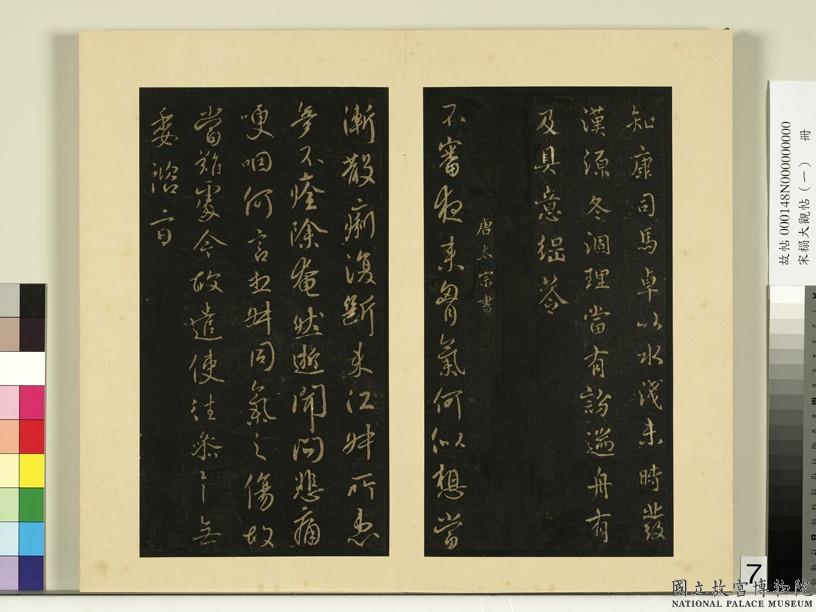 知康司馬卓以水淺未時發
漢源冬涸理當有訪遄舟有
及具意
唐太宗書
不審夜來胷氣何似想當
漸散痢復斷未江姊所患
竟不痊除奄然逝聞問悲痛
哽咽何言兄姊同氣之傷故
當難處今故遣使往參
故帖 000148N000000000
宋榻大觀帖（一） 冊
7
國立故宮博物院
NATIONAL PALACE MUSEUM